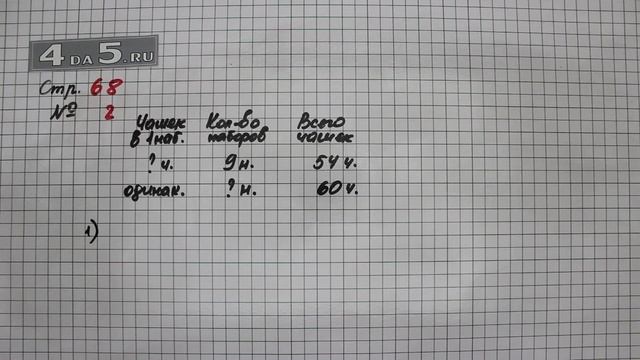 4DA5.RU
Стр. 68
№ 2
Чашек Кол-во Всего
в 1 наб. наборов чашек
? ч. 9 н. 54 ч.
одинак. ? н. 60 ч.
1)